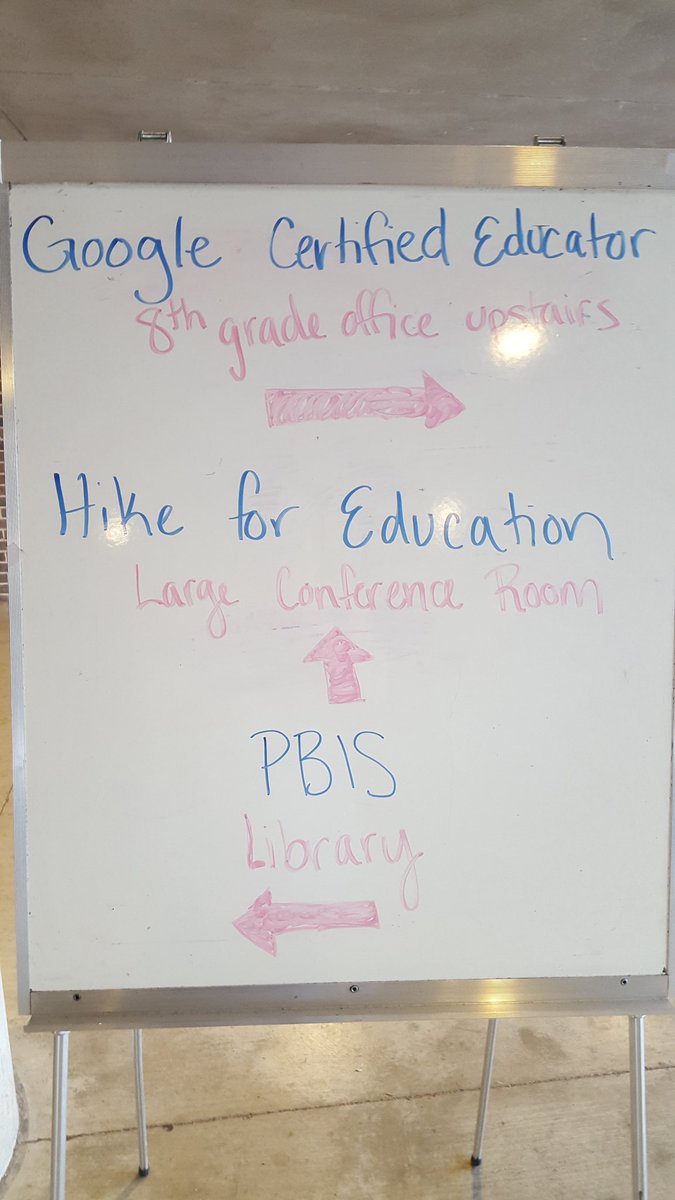 Google Certified Educator
8th grade office upstairs
Hike for Education
Large Conference Room
PBIS
Library